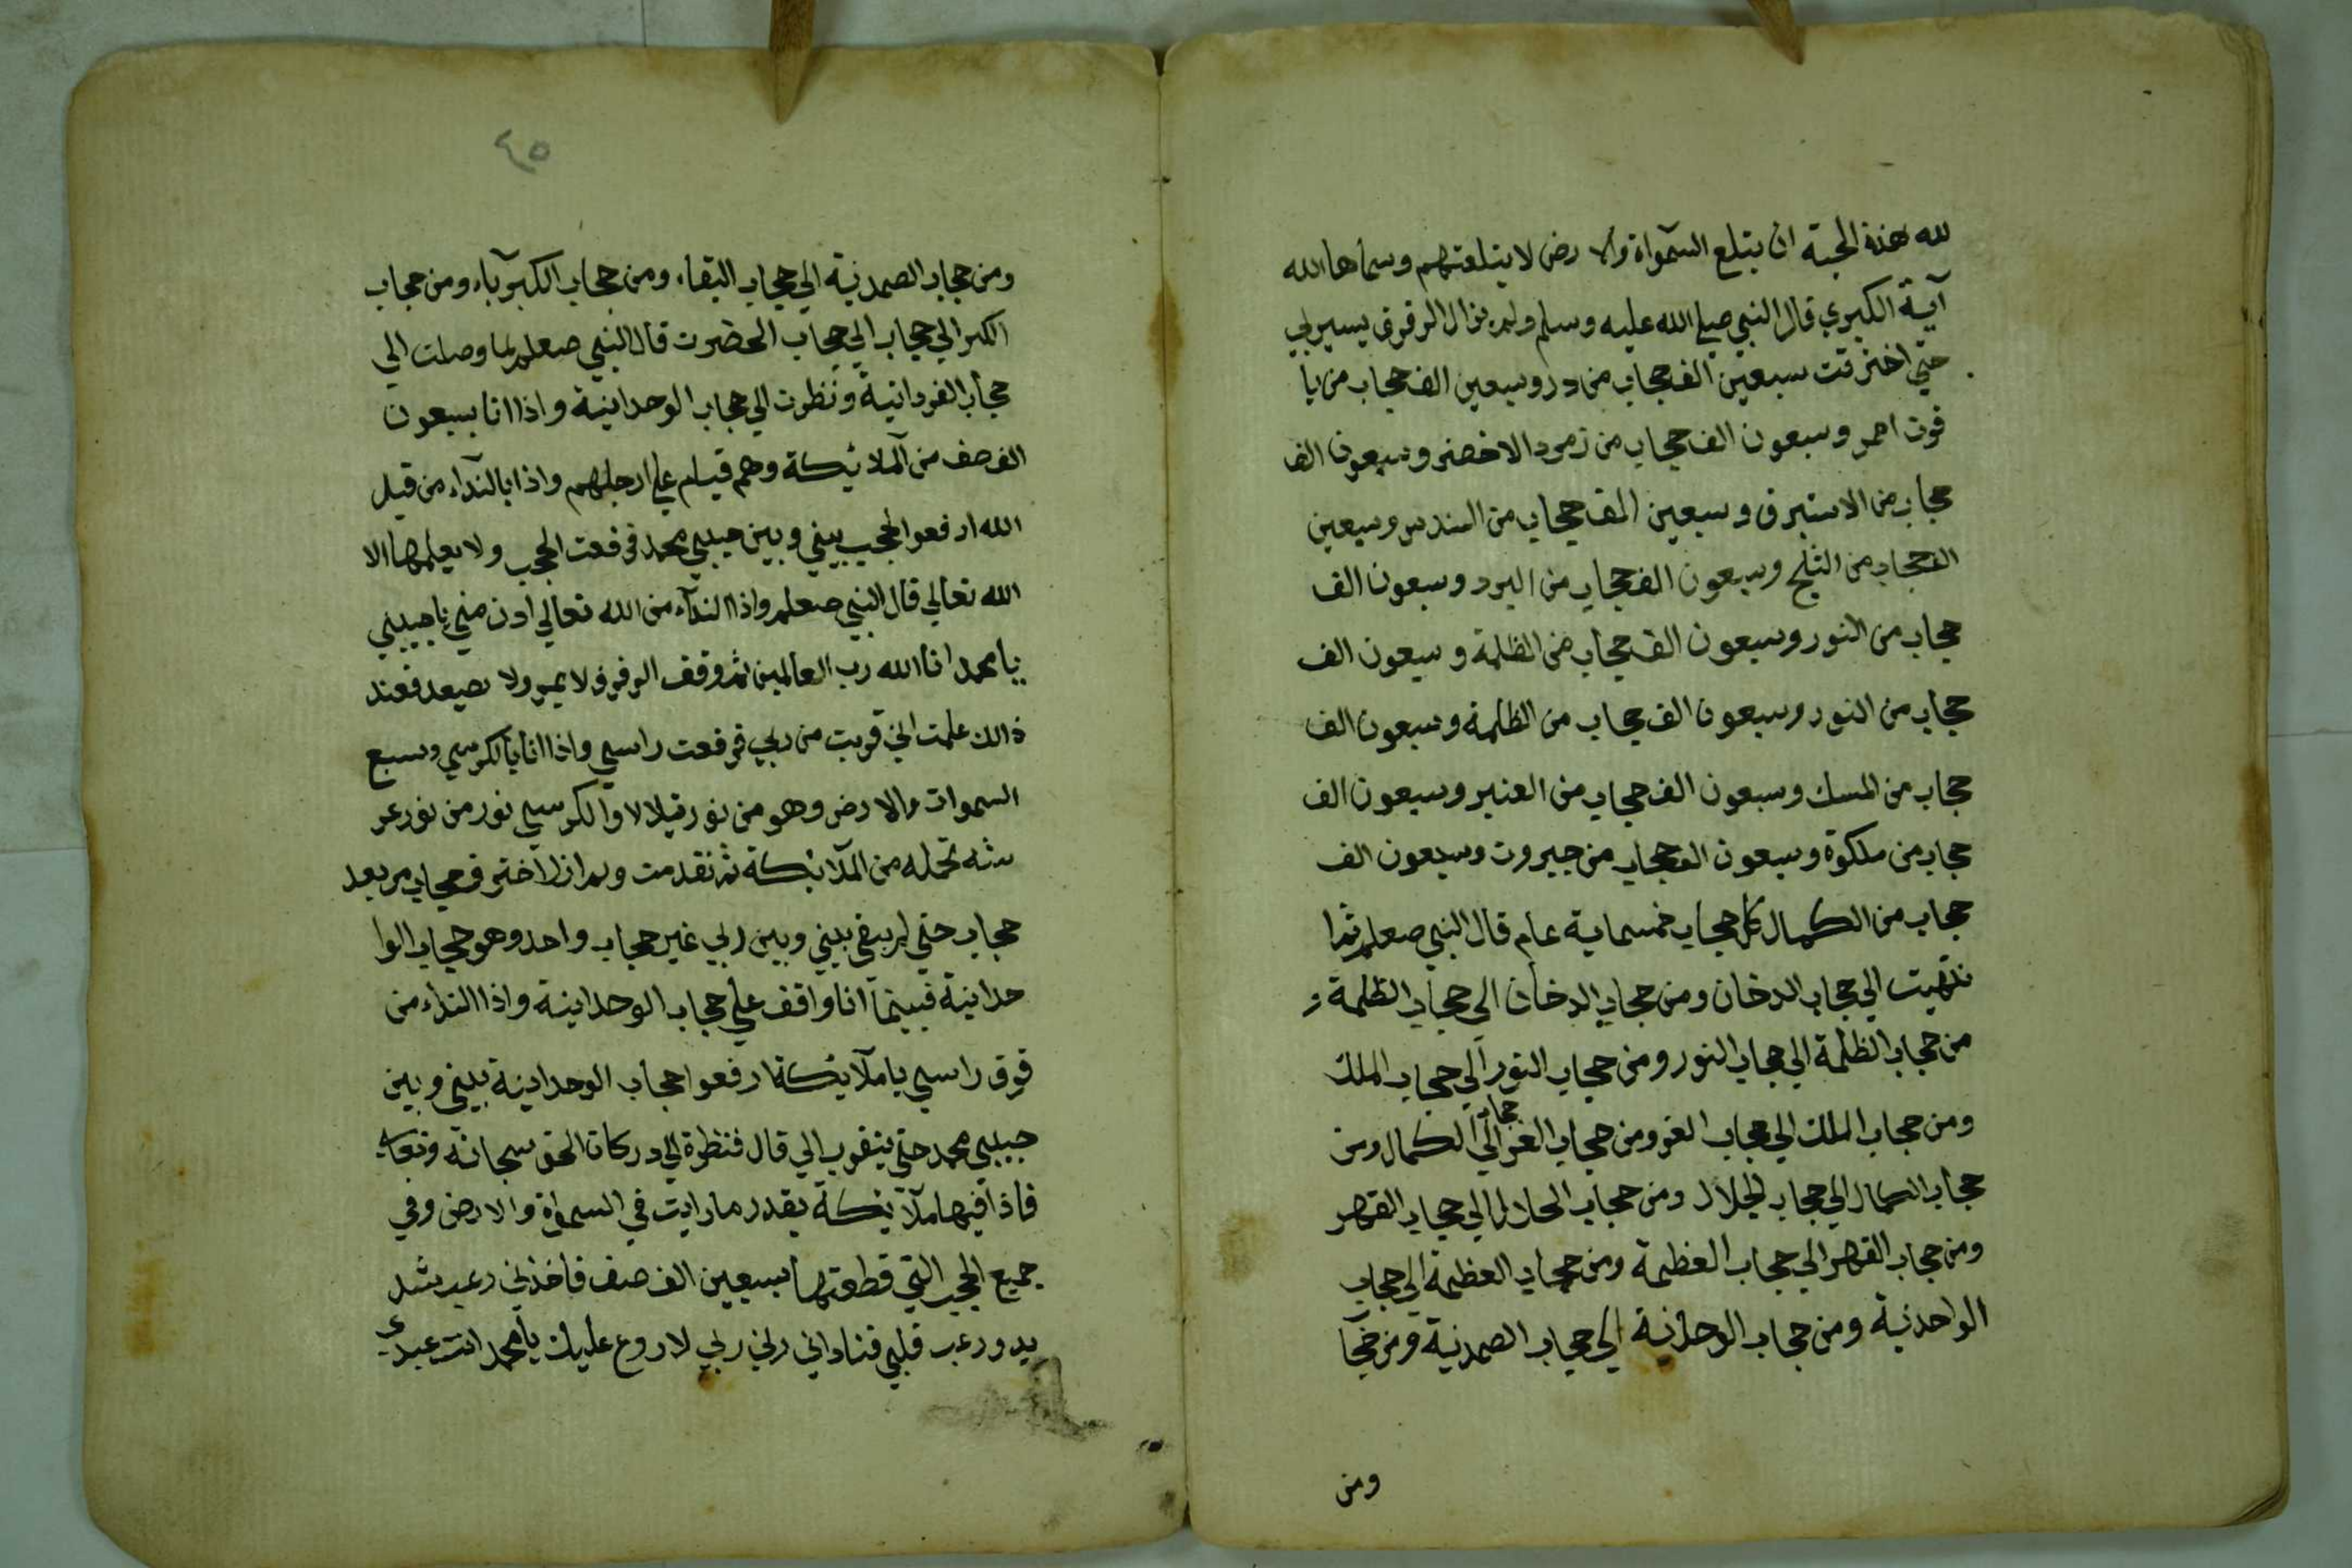 لله هذه الحية ان يتلع السمواة والا رض لا يتلعتهم وسماها الله
آية الكبري قال النبي صلي الله عليه وسلم ولم يزال الرفوف يسير بي
حتي اخترقت سبعين الف حجاب من در وسبعين الف حجاب من يا
قوت احمر وسبعون الف حجاب من زمرد الاخضر وسبعون الف
حجاب من الاستبرق وسبعين الف حجاب من السندس وسبعين
الف حجاب من الثلج وسبعون الف حجاب من البرد وسبعون الف
حجاب من النور وسبعون الف حجاب من الظلمة وسبعون الف
حجاب من النور وسبعون الف حجاب من الظلمة وسبعون الف
حجاب من المسك وسبعون الف حجاب من العنبر وسبعون الف
حجاب من ملكوة وسبعون الف حجاب من جبروت وسبعون الف
حجاب من الكمال كل حجاب خمسماية عام قال النبي صعلم ثم ا
نتهيت الي حجاب الدخان ومن حجاب الدخان الي حجاب الظلمة و
من حجاب الظلمة الي حجاب النور ومن حجاب النور الي حجاب الملك
ومن حجاب الملك الي حجاب العز ومن حجاب العز الي حجاب الكمال ومن
حجاب الكمال الي حجاب الجلال ومن حجاب الجلال الي حجاب القهر
ومن حجاب القهر الي حجاب العظيمة ومن حجاب العظيمة الي حجاب
الواحدنية ومن حجاب الوحدانية الي حجاب الصمدنية ومن حجا
ومن
٤٥
ومن حجاب الصمدنية الي حجاب البقاء ومن حجاب الكبرياء ومن حجاب
الكبر الي حجاب الي حجاب الحضرت قال النبي صعلم لما وصلت الي
حجاب الفردانية ونظرت الي حجاب الوحداينية واذا انا بسبعون
الف صف من الملائيكة وهم قيام علي ارجلهم واذا بالنداء من قبل
الله ارفعوا الحجب بيني وبين حبيبي محمد فرفعت الحجب ولا يعلمها الا
الله تعالي قال النبي صعلم واذا النداء من الله تعالي ادن مني يا حبيبي
يا محمد انا الله رب العالمين ثم وقف الرفرف لا يمر ولا يصعد فعند
ذالك علمت اني قربت من ربي فرفعت راسي واذا انا بالكرسي وسبع
السموات والارض وهو من نور يتلالا والكرسي نور من نور عر
شه تحمله من الملائيكة ثم تقدمت ولم ازل اخترق حجاب من بعد
حجاب حتي لم يبقي بيني وبين ربي غير حجاب واحد وهو حجاب الوا
حداينية فبينما انا واقف علي حجاب الوحداينية واذا النداء من
فوق راسي يا ملايكة ارفعوا حجاب الوحداينية بيني وبين
حبيبي محمد حتي يتقرب الي قال فنظرة الي دركات الحق سبحانه وتعا
فاذا فيها ملايكة بقدر ما رايت في السمواة والارض وفي
جميع الحجب التي قطعتها سبعين الف صف فاخذني رعب شد
يد ورعب قلبي فناداني ربي لا روع عليك يا محمد انت عبدي